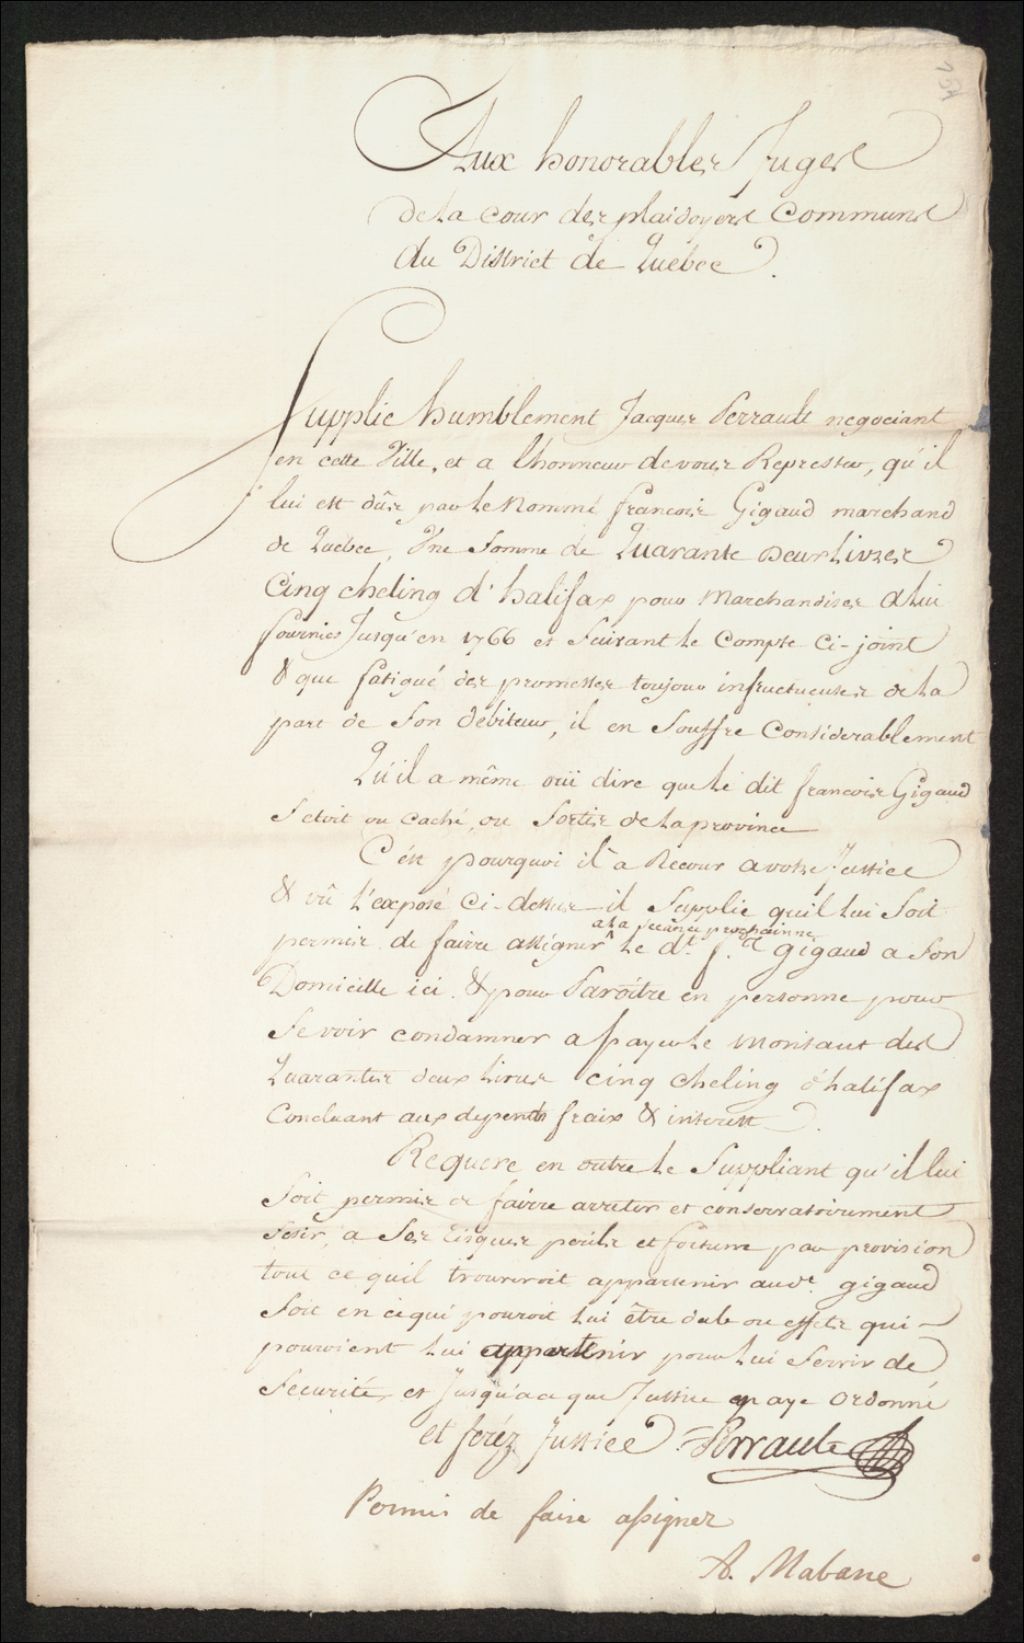 Aux honorables Juges
de la cour des plaidoyers Communs
du District de Quebec.
Supplie humblement Jacques Perrault negociant
en cette Ville, et a lhonneur de vous Represter, qu'il
lui est dûs par le Nommé francois Gigaud marchand
de Quebec, Vne Somme de Quarante Deux Livres
Cinq cheling d'halifax pour Marchandises a lui
fournies Jusqu'en 1766 et Suivant le Compte Ci-joint
& que fatigué des promesses toujour infructueuses de la
part de Son débiteur, il en Souffre Considerablement
Qu'il a même oüi dire que le dit francois Gigaud
S'etoit ou Caché, ou Sortir de la province
C'est pourquoi il a Recour a votre Justice
& vû l'exposé Ci-dessus il Supplie quil lui Soit
a la seance prochainne
permis de fairre assigner le dt. f. gigaud a Son
Domicille ici & pour Paroître en personne pour
Se voir condamner a payer le Montant des
Quarantes deux livres cinq cheling d'halifax
Concluant aux depends fraix & interest
Requere en outre le Suppliant qu'il lui
Soit permis de fairre arreter et conservatoirement
Sesir, a Ses Risques perils et fortune par provision
tout ce quil trouveroit appartenir au dt. gigaud
Soit en ce qui pouroit lui être dub ou effets qui
pouroient lui appartenir pour lui Servir de
Securité, et Jusqu'a ce que Justice en aye Ordonné
et ferez Justice Perrault
Permis de faire assigner
A. Mabane